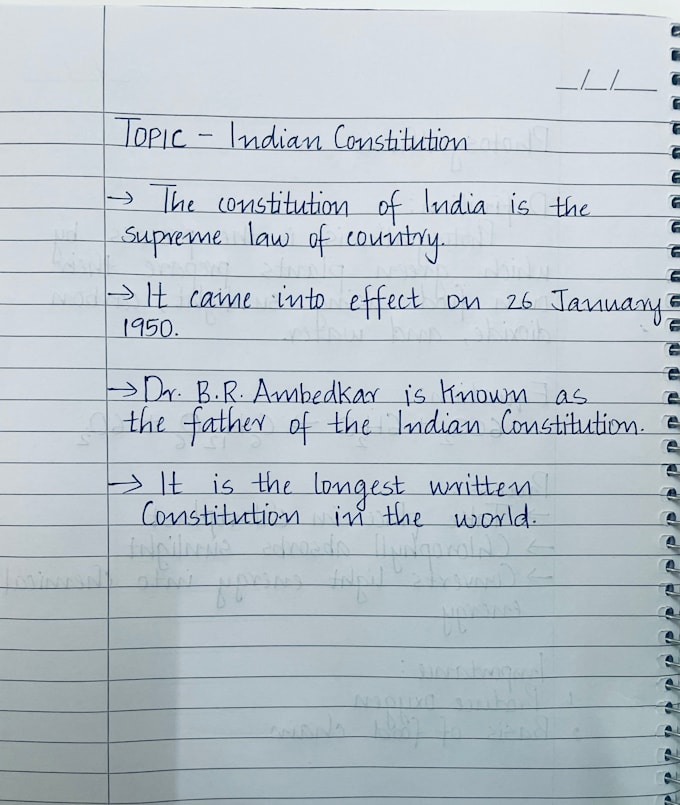 _/_/__
TOPIC - Indian Constitution
→ The constitution of India is the
supreme law of country.
→ It came into effect on 26 January
1950.
→ Dr. B.R. Ambedkar is known as
the father of the Indian Constitution.
→ It is the longest written
Constitution in the world.